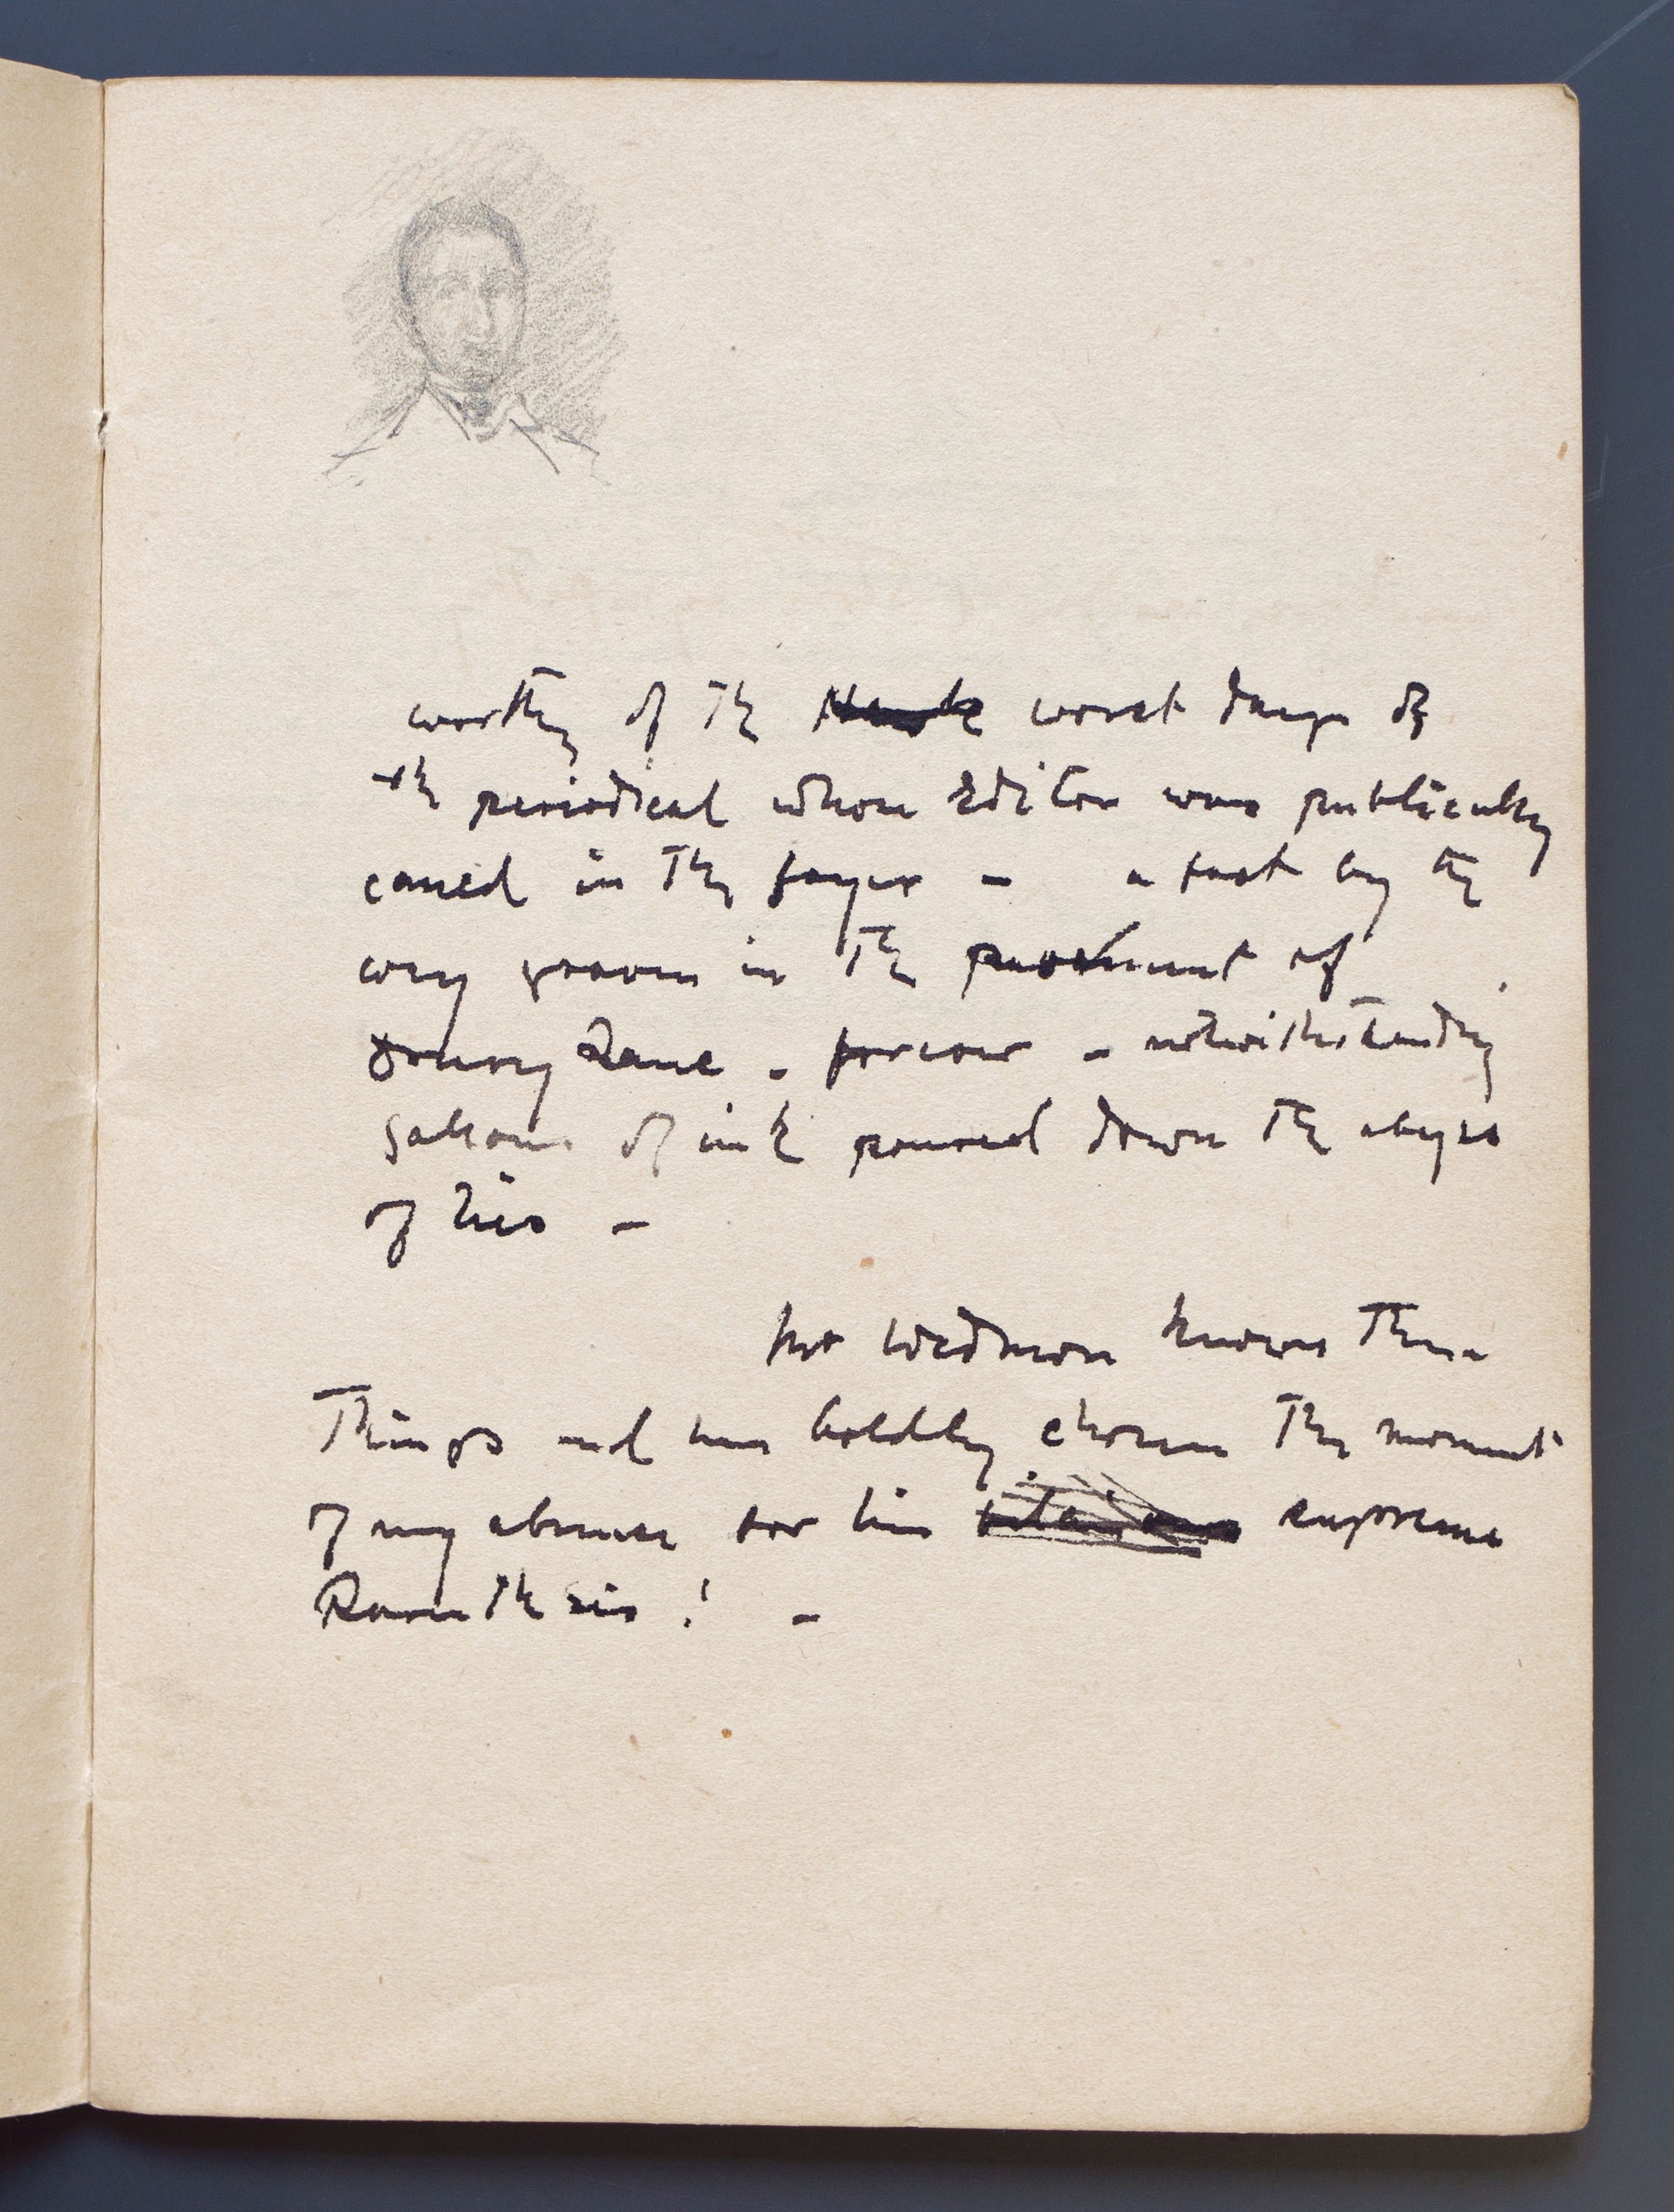 worthy of the Hawk worst days of
the periodical whose Editor was publically
caned in the foyer – a fact by the
way graven in the pavement of
Drury Lane – forever – notwithstanding
gallons of ink poured down the abyss
of Lies –
Wedmore knows these
Things and has boldly chosen the moment
of my absence for his supreme
Parenthesis! –